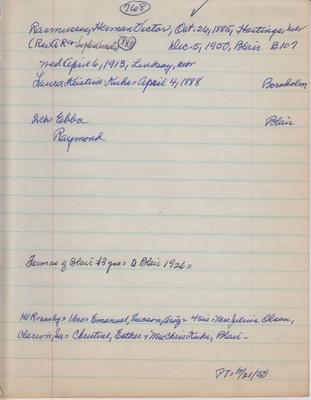 768
Rasmussen, Herman Victor, Oct. 26, 1885, Hastings, Nebr
(Rasmus R & 889 Dec. 5, 1950, Blair B107
wed April 6, 1913, Lindsay, Nebr
Laura Kristine Kuhr April 4, 1888 Bornholm
Ich Ebba Blair
Raymond
Farmer of Blair to Blair 1926 =
Bros = Emanuel, Tucson, Ariz = 4 sis = Mrs Julius Olson,
Clarion, Ia = Christine, Esther + Mrs Chris Kuhr, Blair -